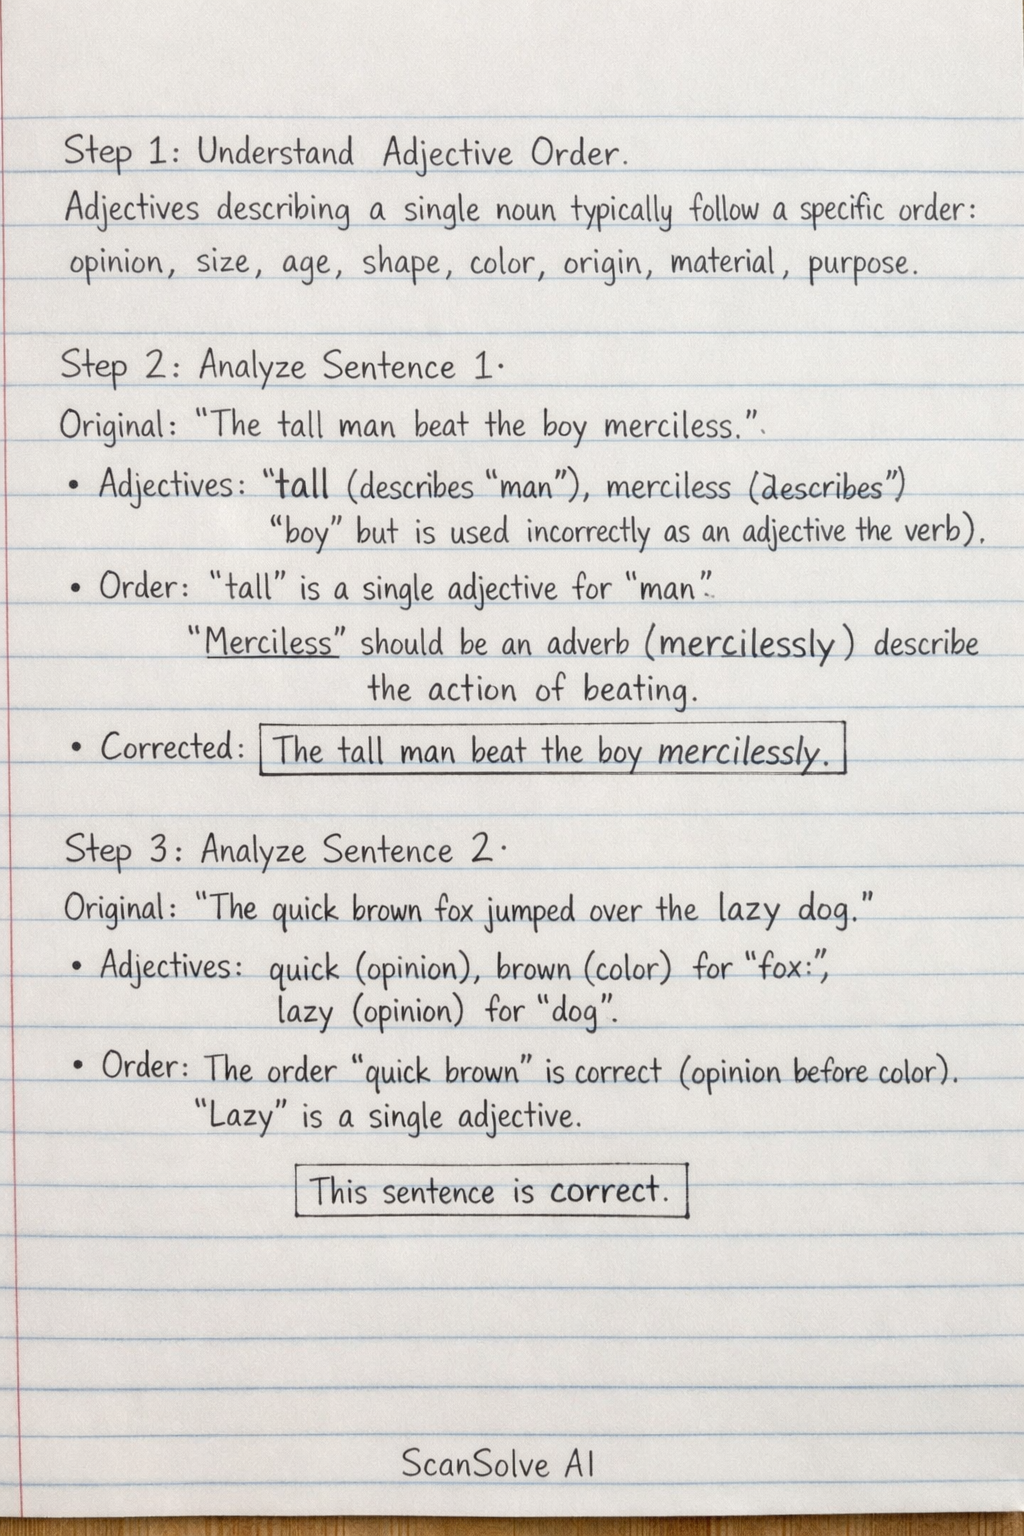 Step 1: Understand Adjective Order.
Adjectives describing a single noun typically follow a specific order:
opinion, size, age, shape, color, origin, material, purpose.
Step 2: Analyze Sentence 1.
Original: “The tall man beat the boy merciless.”.
• Adjectives: “tall (describes “man”), merciless (describes”)
“boy” but is used incorrectly as an adjective the verb).
• Order: “tall” is a single adjective for “man”.
“Merciless” should be an adverb (mercilessly) describe
the action of beating.
• Corrected: The tall man beat the boy mercilessly.
Step 3: Analyze Sentence 2.
Original: “The quick brown fox jumped over the lazy dog.”
• Adjectives: quick (opinion), brown (color) for “fox:”,
lazy (opinion) for “dog”.
• Order: The order “quick brown” is correct (opinion before color).
“Lazy” is a single adjective.
This sentence is correct.
ScanSolve AI